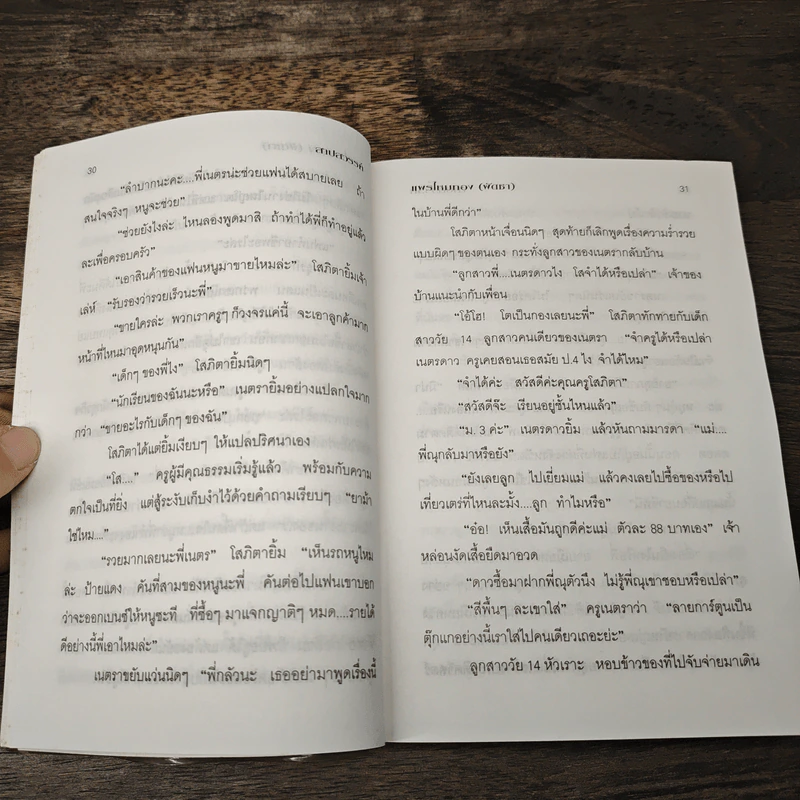 30
สาปสวรรค์
"ลำบากนะคะ....พี่เนตรน่ะช่วยแฟนได้สบายเลย ถ้า
สนใจจริงๆ หนูจะช่วย"
"ช่วยยังไงล่ะ ไหนลองพูดมาสิ ถ้าทำได้พี่ก็ทำอยู่แล้ว
ละเพื่อครอบครัว"
"เอาสินค้าของแฟนหนูมาขายไหมล่ะ" โสภิตายิ้มเจ้า
เล่ห์ "รับรองว่ารวยเร็วนะพี่"
"ขายใครล่ะ พวกเราครูๆ ก็วงจรแค่นี้ จะเอาลูกค้ามาก
หน้าที่ไหนมาอุดหนุนกัน"
"เด็กๆ ของพี่ไง" โสภิตายิ้มนิดๆ
"นักเรียนของฉันนะหรือ" เนตรายิ้มอย่างแปลกใจมาก
กว่า "ขายอะไรกับเด็กๆ ของฉัน"
โสภิตาได้แต่ยิ้มเงียบๆ ให้แปลปริศนาเอง
"โส...." ครูผู้มีคุณธรรมเริ่มรู้แล้ว พร้อมกับความ
ตกใจเป็นที่ยิ่ง แต่สู้ระงับเก็บงำไว้ด้วยคำถามเรียบๆ "ยาม้า
ใช่ไหม...."
"รวยมากเลยนะพี่เนตร" โสภิตายิ้ม "เห็นรถหนูไหม
ล่ะ ป้ายแดง คันที่สามของหนูนะพี่ คันต่อไปแฟนเขาบอก
ว่าจะออกเบนซ์ให้หนูซะที ที่ซื้อๆ มาแจกญาติๆ หมด....รายได้
ดีอย่างนี้พี่เอาไหมล่ะ"
เนตราขยับแว่นนิดๆ "พี่กลัวนะ เธออย่ามาพูดเรื่องนี้
แพรไหมทอง (พัดชา)
31
ในบ้านพี่ดีกว่า"
โสภิตาหน้าเจื่อนนิดๆ สุดท้ายก็เลิกพูดเรื่องความร่ำรวย
แบบผิดๆ ของตนเอง กระทั่งลูกสาวของเนตรากลับบ้าน
"ลูกสาวพี่....เนตรดาวไง โสจำได้หรือเปล่า" เจ้าของ
บ้านแนะนำกับเพื่อน
"โอ้โฮ! โตเป็นกองเลยนะพี่" โสภิตาทักทายกับเด็ก
สาววัย 14 ลูกสาวคนเดียวของเนตรา "จำครูได้หรือเปล่า
เนตรดาว ครูเคยสอนเธอสมัย ป.4 ไง จำได้ไหม"
"จำได้ค่ะ สวัสดีค่ะคุณครูโสภิตา"
"สวัสดีจ๊ะ เรียนอยู่ชั้นไหนแล้ว"
"ม. 3 ค่ะ" เนตรดาวยิ้ม แล้วหันถามมารดา "แม่....
พี่ณุกลับมาหรือยัง"
"ยังเลยลูก ไปเยี่ยมแม่ แล้วคงเลยไปซื้อของหรือไป
เที่ยวเตร่ที่ไหนละมั้ง....ลูก ทำไมหรือ"
"อ๋อ! เห็นเสื้อมันถูกดีค่ะแม่ ตัวละ 88 บาทเอง" เจ้า
หล่อนงัดเสื้อยืดมาอวด
"ดาวซื้อมาฝากพี่ณุตัวนึง ไม่รู้พี่ณุเขาชอบหรือเปล่า"
"สีพื้นๆ ละเขาใส่" ครูเนตราว่า "ลายการ์ตูนเป็น
ตุ๊กแกอย่างนี้เราใส่ไปคนเดียวเถอะย่ะ"
ลูกสาววัย 14 หัวเราะ หอบข้าวของที่ไปจับจ่ายมาเดิน